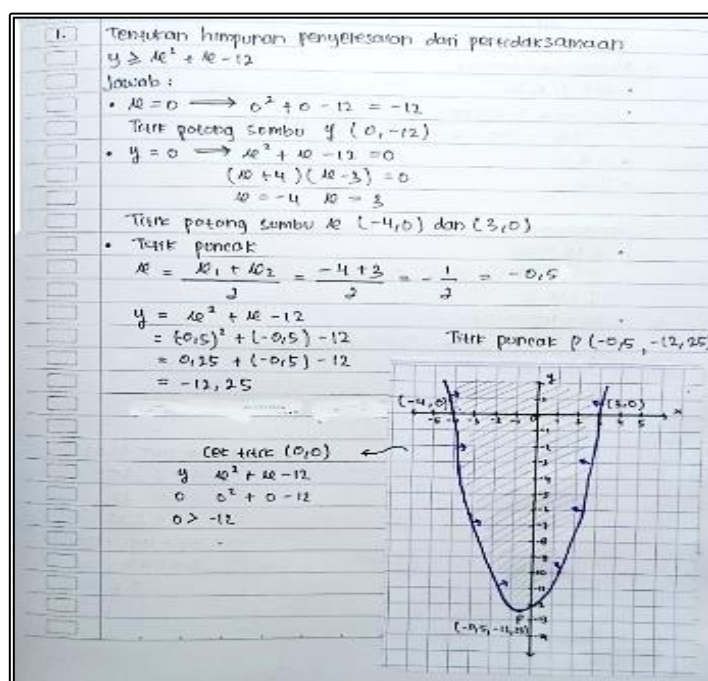 1. Tentukan himpunan penyelesaian dari pertidaksamaan
y ≥ x² + x - 12
Jawab :
• x = 0 ⟶ 0² + 0 - 12 = -12
Titik potong sumbu y (0, -12)
• y = 0 ⟶ x² + x - 12 = 0
(x + 4) (x - 3) = 0
x = -4 x = 3
Titik potong sumbu x (-4,0) dan (3,0)
• Titik puncak
x = x₁ + x₂ / 2 = -4 + 3 / 2 = - 1/2 = -0,5
y = x² + x - 12
= (-0,5)² + (-0,5) - 12
= 0,25 + (-0,5) - 12
= -12,25
Titik puncak P (-0,5 , -12,25)
Cek titik (0,0)
y x² + x - 12
0 0² + 0 - 12
0 > -12
y
(-4,0)
(3,0)
x
P
(-0,5, -12,25)